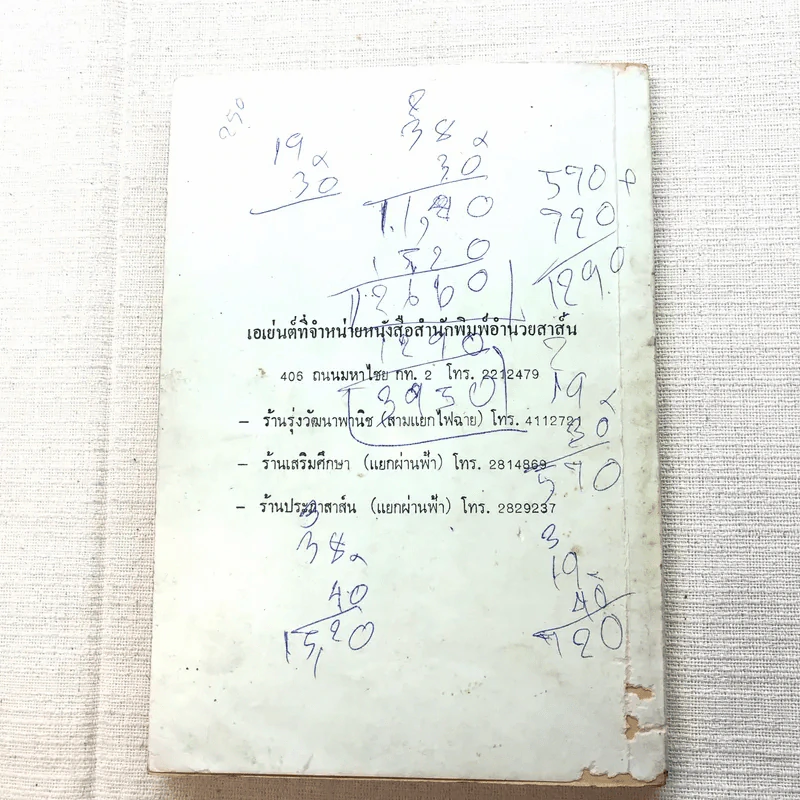 250
8
19 x 38 x
30 30
570 +
1,140
720
1,520
1290
12660
เอเย่นต์ที่จำหน่ายหนังสือสำนักพิมพ์อำนวยสาส์น
1290
2
406 ถนนมหาไชย กท. 2 โทร. 2212479
19 x
3950
– ร้านรุ่งวัฒนาพานิช (สามแยกไฟฉาย) โทร. 4112721
30
– ร้านเสริมศึกษา (แยกผ่านฟ้า) โทร. 2814869
570
– ร้านประภาสาส์น (แยกผ่านฟ้า) โทร. 2829237
3
38 x
3
19 x
40
40
1,520
720